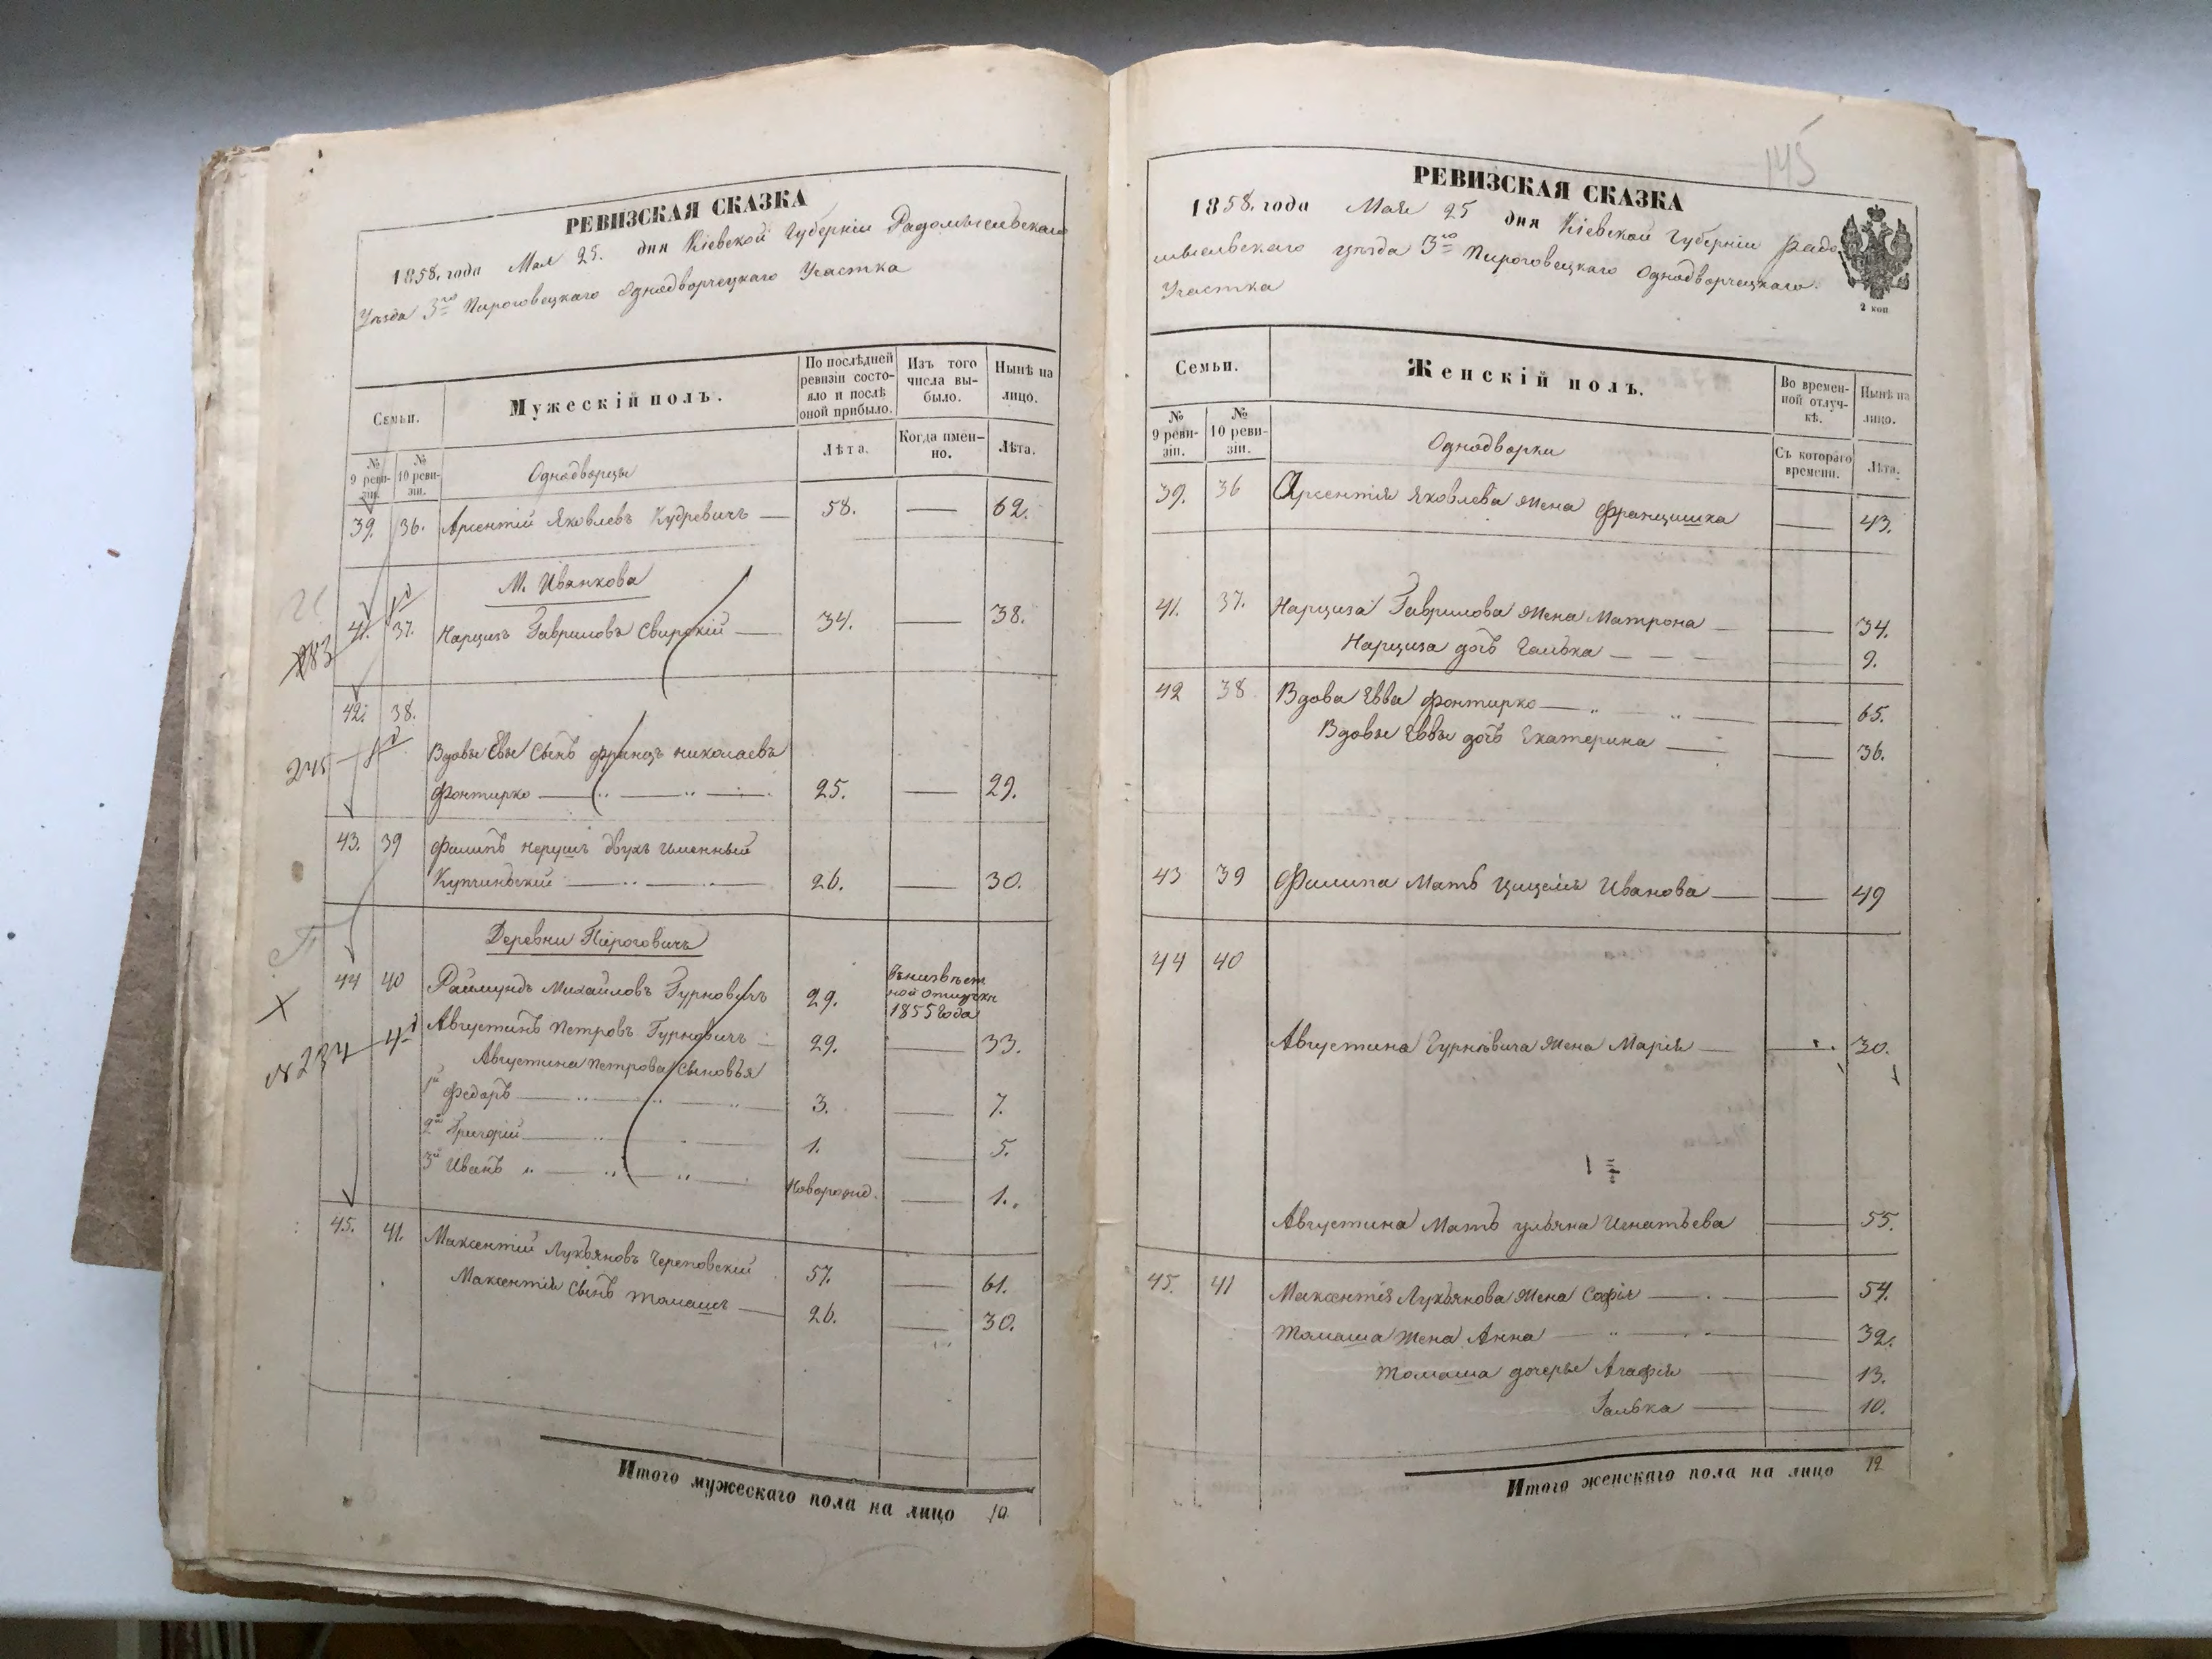 РЕВИЗСКАЯ СКАЗКА
1858. года Мая 25. дня Кіевской Губерніи Радомысльскаго
Уѣзда 3го Пироговецкаго Однодворческаго Участка
Семьи.
Мужескій полъ.
По послѣдней ревизіи состояло и послѣ оной прибыло.
Изъ того числа выбыло.
Нынѣ на лицо.
№ 9 ревизіи.
№ 10 ревизіи.
Однодворцы
Лѣта.
Когда именно.
Лѣта.
39. 36. Арсентій Яковлевъ Кудревичъ — 58. — 62.
М. Иванкова
41. 37. Нарцизъ Гавриловъ Свирскій — 34. — 38.
283
42. 38.
245
Вдовы Евы Сынъ Францъ Николаевъ
Фонтирко — 25. — 29.
43. 39 Филипъ Нерушъ двухъ именный
Купчинскій — 26. — 30.
Деревни Пироговичъ
44 40 Раймундъ Михайловъ Гурновичъ 29. 1855 года
Августинъ Петровъ Гурновичъ — 29. — 33.
№ 234
Августина Петрова Сыновья
1й Федоръ — 3. — 7.
2й Григорій — 1. — 5.
3й Иванъ — Новорожд. — 1.
45. 41. Максентій Лукьяновъ Череповскій 57. — 61.
Максентія Сынъ Томашъ — 26. — 30.
Итого мужескаго пола на лицо 10
145
РЕВИЗСКАЯ СКАЗКА
1858. года Мая 25 дня Кіевской Губерніи Радо
мысльскаго уѣзда 3го Пироговецкаго Однодворческаго
Участка
2 коп
Семьи.
Женскій полъ.
Во временной отлучкѣ.
Нынѣ на лицо.
№ 9 ревизіи.
№ 10 ревизіи.
Однодворки
Съ котораго времени.
Лѣта.
39. 36 Арсентія Яковлева жена Францишка — 43.
41. 37. Нарциза Гаврилова жена Матрона — 34.
Нарциза дочь Галька — 9.
42 38 Вдова Евва Фонтирко — 65.
Вдовы Еввы дочь Екатерина — 36.
43 39 Филипа Мать Цицелія Иванова — 49
44 40
Августина Гурновича жена Марія — 30.
Августина Мать Ульяна Игнатьева — 55.
45. 41 Максентія Лукьянова жена Софія — 54.
Томаша жена Анна — 32.
Томаша дочеры Агафія — 13.
Галька — 10.
Итого женскаго пола на лицо 12